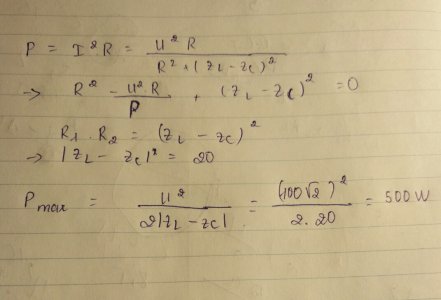 P = I²R = U²R / R² + (ZL - ZC)²
→ R² - U²R / P + (ZL - ZC)² = 0
R1 . R2 = (ZL - ZC)²
→ |ZL - ZC|² = 20
Pmax = U² / 2|ZL - ZC| = (100√2)² / 2.20 = 500 W